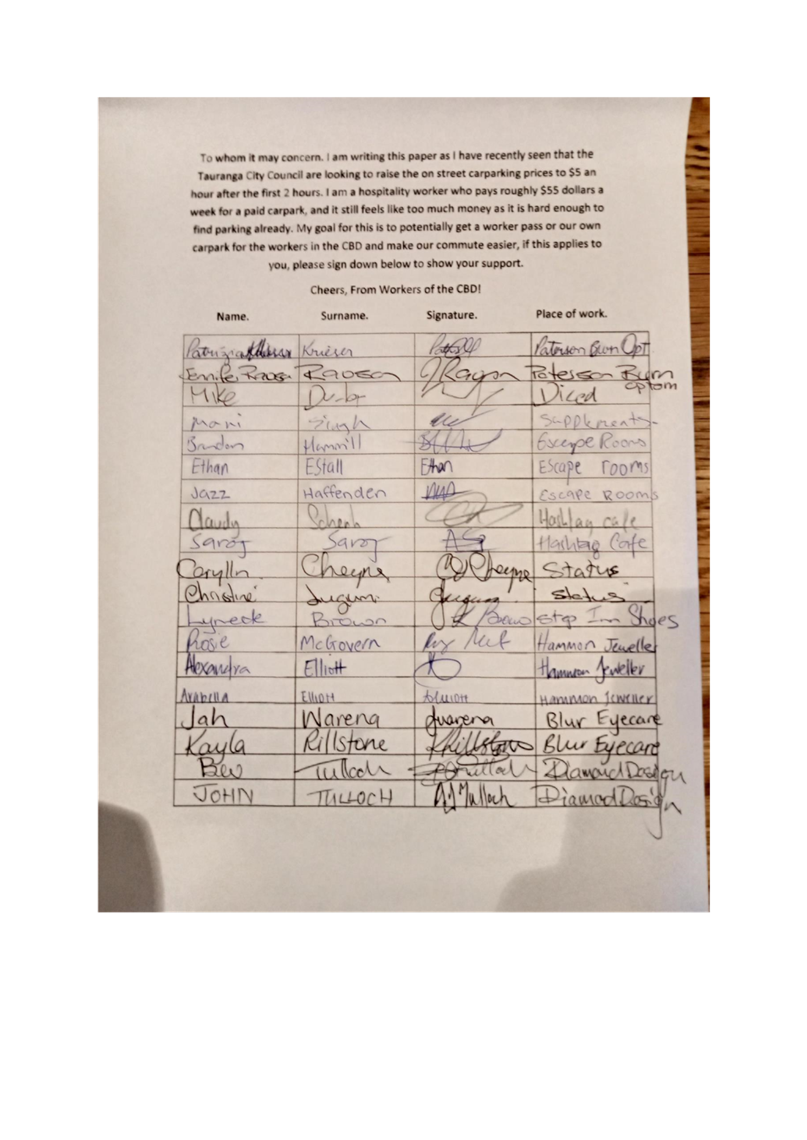 To whom it may concern. I am writing this paper as I have recently seen that the
Tauranga City Council are looking to raise the on street carparking prices to $5 an
hour after the first 2 hours. I am a hospitality worker who pays roughly $55 dollars a
week for a paid carpark, and it still feels like too much money as it is hard enough to
find parking already. My goal for this is to potentially get a worker pass or our own
carpark for the workers in the CBD and make our commute easier, if this applies to
you, please sign down below to show your support.
Cheers, From Workers of the CBD!
Name. Surname. Signature. Place of work.
Krieser Paterson Burn Opt
Paterson Burn optom
Mike Diced
Mani Singh Supplements
Brandon Hammill Escape Rooms
Ethan EStall Ethan Escape rooms
Jazz Haffenden Escape Rooms
Claudy Hashtag cafe
Saroj Saroj Hashtag Cafe
Cheyne Cheyne Status
Christine status
Brown Step Inn Shoes
Rose McGovern Hammon Jeweller
Alexandra Elliott Hammon Jeweller
Arabella Elliott Hammon Jeweller
Jah Warena Jwarena Blur Eyecare
Kayla Rillstone KRillstone Blur Eyecare
Bev Tulloch Diamond Design
JOHN TULLOCH Diamod Design